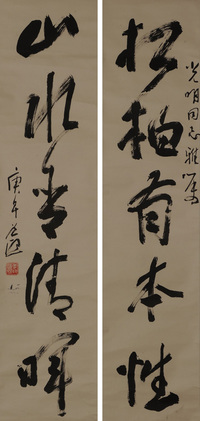 松柏有本性
光明同志雅嘱
山水含清晖
庚午